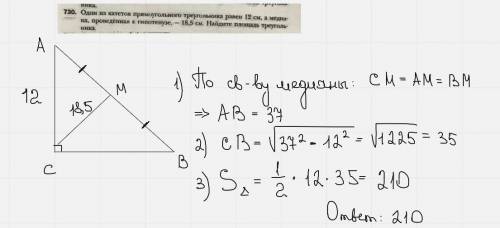 ника.
730. Один из катетов прямоугольного треугольника равен 12 см, а медиа-
на, проведённая к гипотенузе, — 18,5 см. Найдите площадь треуголь-
ника.
A
12
18,5
M
C
B
1) По св-ву медианы: CM = AM = BM
⇒ AB = 37
2) CB = √37² - 12² = √1225 = 35
3) S△ = 1/2 · 12 · 35 = 210
Ответ: 210